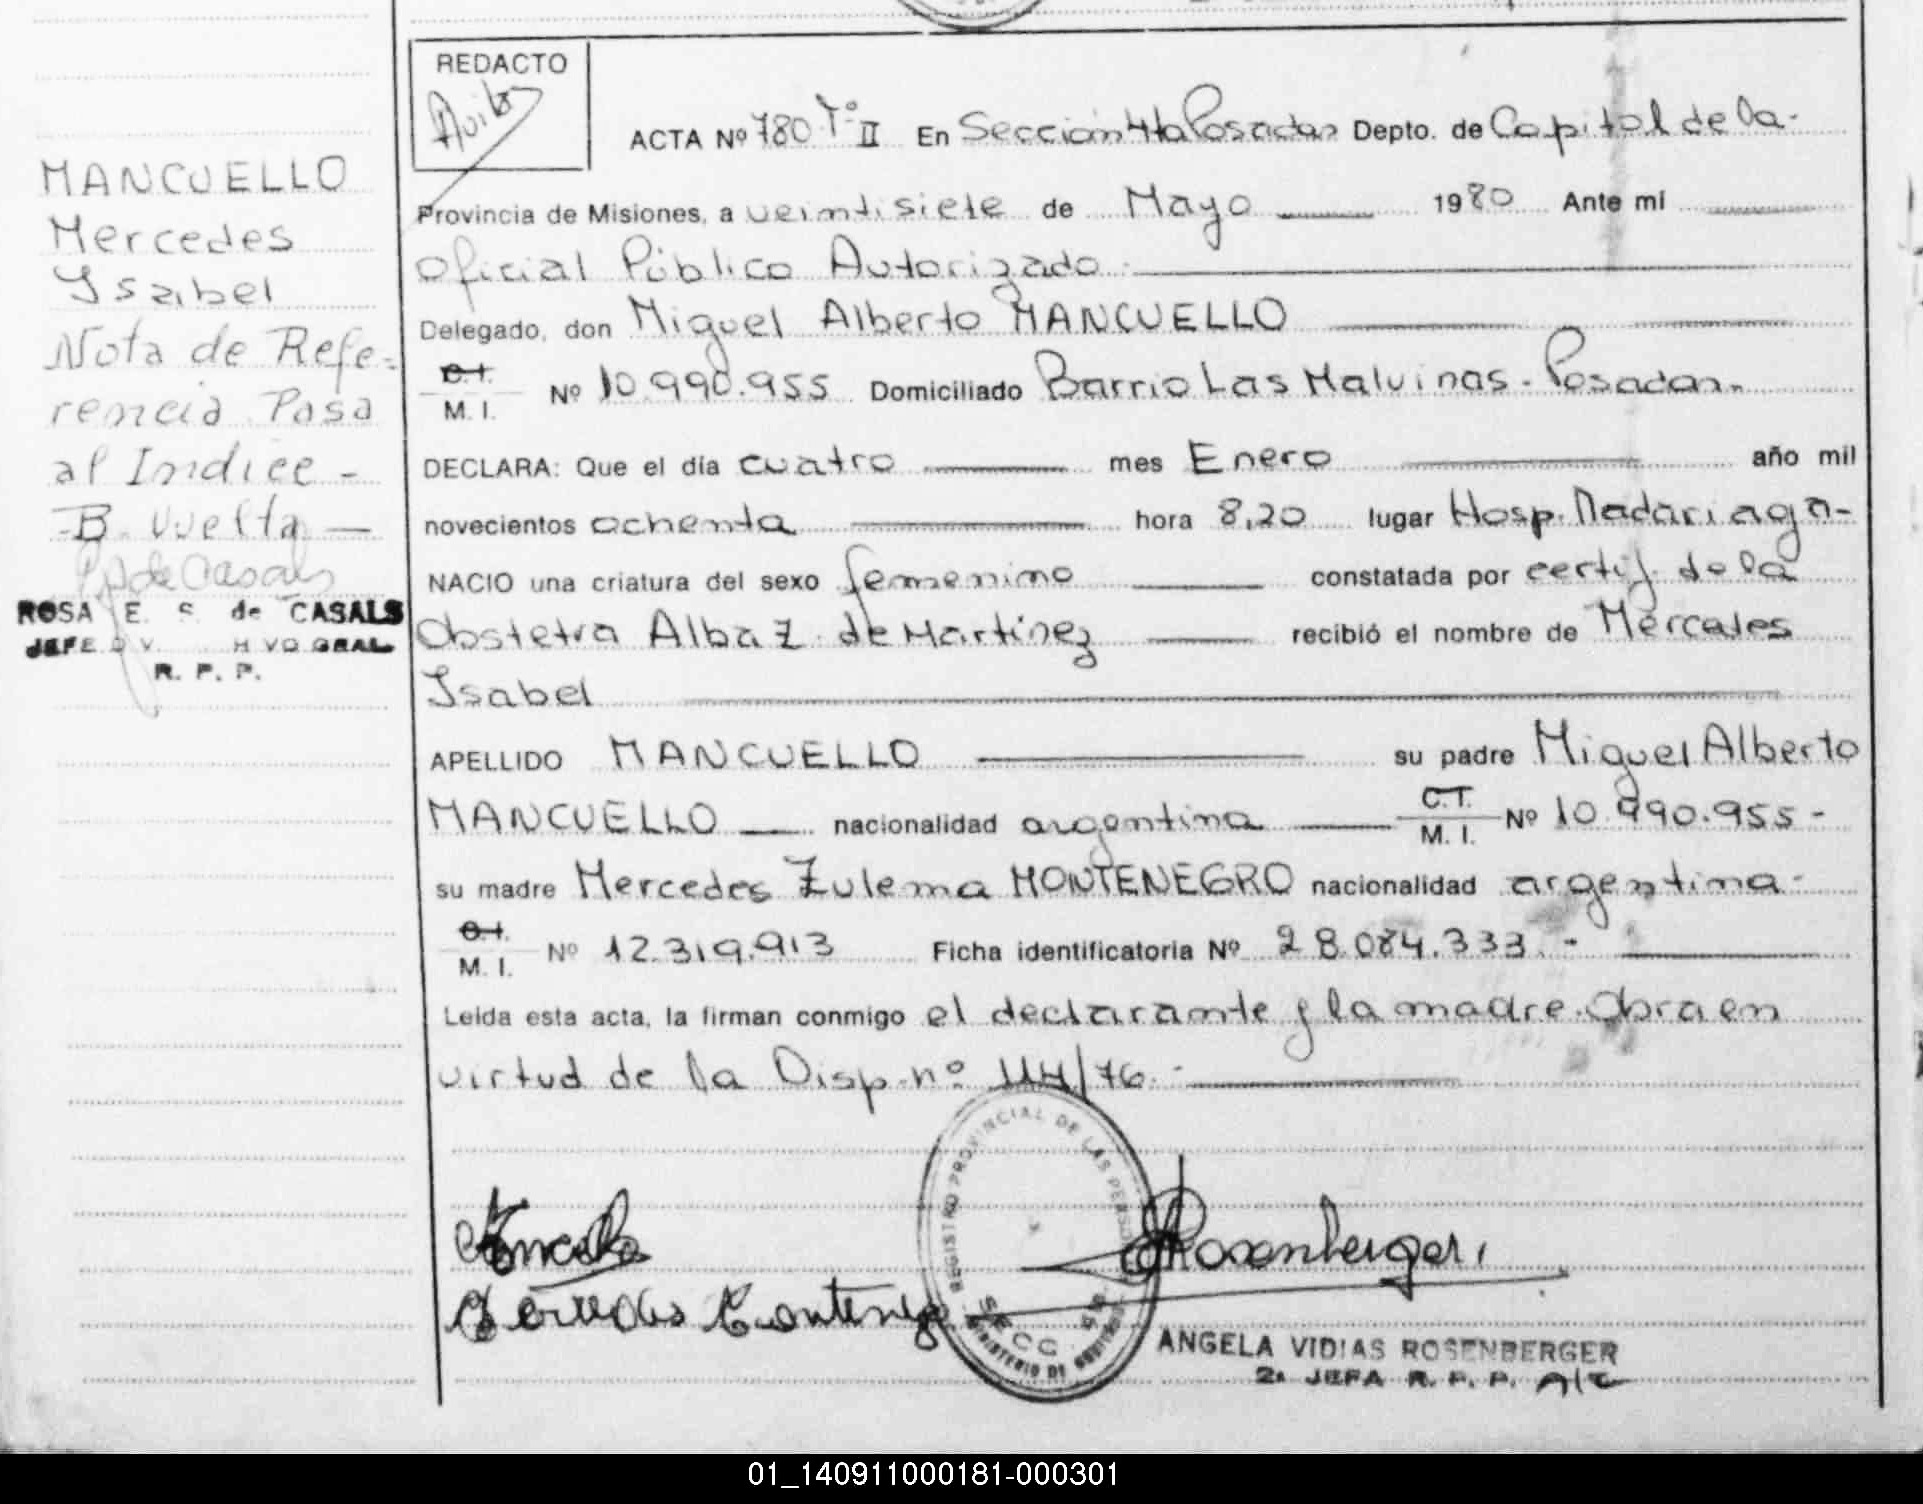 REDACTO
Avila
ACTA Nº 780 Tº II En Sección 4ta Posadas Depto. de Capital de la-
Provincia de Misiones, a veintisiete de Mayo 1980 Ante mí
Oficial Público Autorizado
Delegado, don Miguel Alberto MANCUELLO
C.I. M. I. Nº 10.990.955 Domiciliado Barrio Las Malvinas - Posadas.-
DECLARA: Que el día cuatro mes Enero año mil
novecientos ochenta hora 8,20 lugar Hosp. Madariaga-
NACIO una criatura del sexo femenino constatada por certif. de la
Obstetra Alba Z. de Martínez recibió el nombre de Mercedes
Isabel
APELLIDO MANCUELLO su padre Miguel Alberto
MANCUELLO nacionalidad argentina C.I. M. I. Nº 10.990.955-
su madre Mercedes Zulema MONTENEGRO nacionalidad argentina-
C.I. M. I. Nº 12.319.913 Ficha identificatoria Nº 28.084.333.-
Leída esta acta, la firman conmigo el declarante y la madre. Obra en
virtud de la Disp. nº 114/76.-
MANCUELLO
Mercedes
Ysabel
Nota de Refe-
rencia Pasa
al Indice -
-B. Vuelta-
ROSA E. S. de CASALS
JEFE
R. P. P.
REGISTRO PROVINCIAL DE LAS
Mercedes Montenegro
Rosenberger
ANGELA VIDIAS ROSENBERGER
2a JEFA R. P. P. A/C
01_140911000181-000301